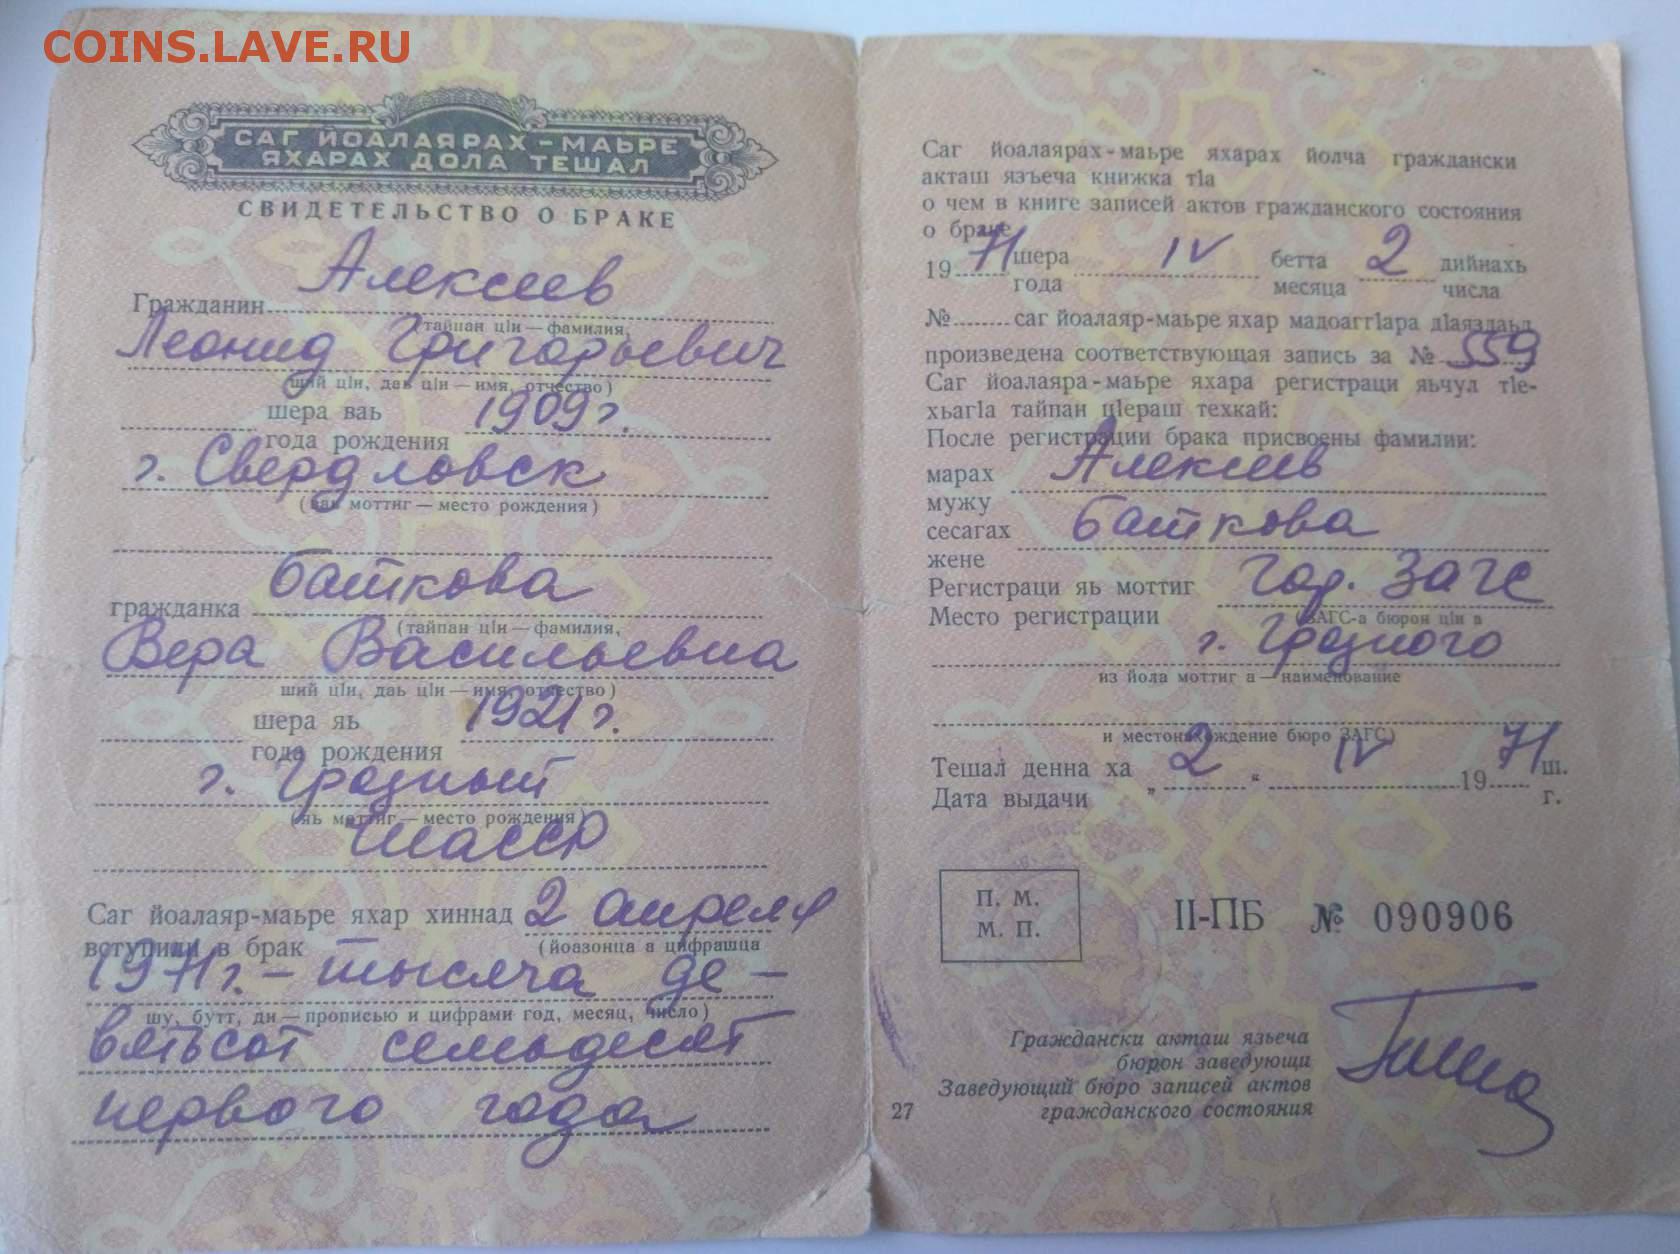 COINS.LAVE.RU
САГ ЙОАЛАЯРАХ - МАЬРЕ
ЯХАРАХ ДОЛА ТЕШАЛ
СВИДЕТЕЛЬСТВО О БРАКЕ
Гражданин Алексеев
(тайпан цӀи — фамилия,
Леонид Григорьевич
ший цӀи, даь цӀи — имя, отчество)
шера ваь
года рождения 1909 г.
г. Свердловск
(ваь моттиг — место рождения)
гражданка Баткова
(тайпан цӀи — фамилия,
Вера Васильевна
ший цӀи, даь цӀи — имя, отчество)
шера яь
года рождения 1921 г.
г. Грозный
(яь моттиг — место рождения)
ЧИАССР
Саг йоалаяр-маьре яхар хиннад 2 апреля
вступили в брак (йоазонца а цифрашца
1971 г. - тысяча де-
шу, бутт, ди — прописью и цифрами год, месяц, число)
вятьсот семьдесят
первого года
Саг йоалаярах - маьре яхарах йолча граждански
акташ язъеча книжка тӀа
о чем в книге записей актов гражданского состояния
о браке
19 71 шера IV бетта 2 дийнахь
года месяца числа
№ саг йоалаяр-маьре яхар мадоаггӀара дӀаяздаьд
произведена соответствующая запись за № 559
Саг йоалаяра - маьре яхара регистраци яьчул тӀе-
хьагӀа тайпан цӀераш техкай:
После регистрации брака присвоены фамилии:
марах
мужу Алексеев
сесагах
жене Баткова
Регистраци яь моттиг Гор. ЗАГС
Место регистрации (ЗАГС-а бюрон цӀи а
г. Грозного
из йола моттиг а — наименование
и местонахождение бюро ЗАГС)
Тешал денна ха „ 2 “ IV 19 71 ш.
Дата выдачи г.
П. М.
М. П.
II-ПБ № 090906
Граждански акташ язъеча
бюрон заведующи
Заведующий бюро записей актов
гражданского состояния
27